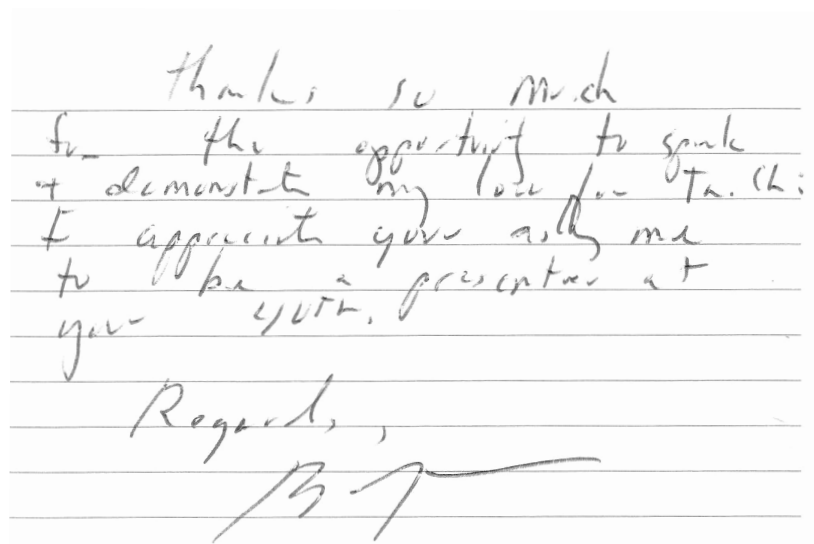 Thanks so much
for the opportunity to speak
+ demonstrate my love for Tai Chi
I appreciate your asking me
to be a presenter at
your
Regards,